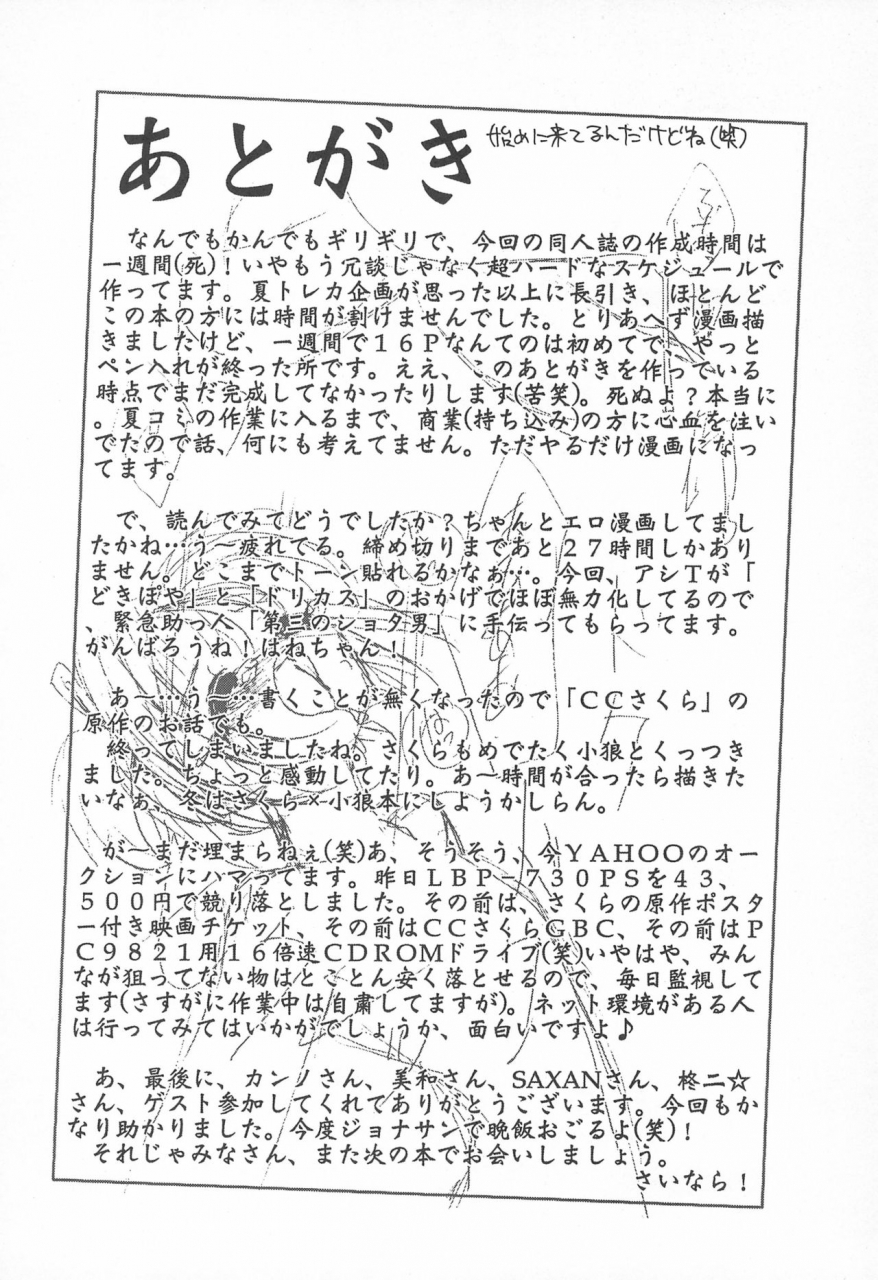 あとがき 始めに来てるんだけどね(笑)
なんでもかんでもギリギリで、今回の同人誌の作成時間は
一週間(死)！いやもう冗談じゃなく超ハードなスケジュールで
作ってます。夏トレカ企画が思った以上に長引き、ほとんど
この本の方には時間が割けませんでした。とりあへず漫画描
きましたけど、一週間で１６Ｐなんてのは初めてで、やっと
ペン入れが終った所です。ええ、このあとがきを作っている
時点でまだ完成してなかったりします(苦笑)。死ぬよ？本当に
。夏コミの作業に入るまで、商業(持ち込み)の方に心血を注い
でたので話、何にも考えてません。ただヤるだけ漫画になっ
てます。
で、読んでみてどうでしたか？ちゃんとエロ漫画してまし
たかね…う〜疲れてる。締め切りまであと２７時間しかあり
ません。どこまでトーン貼れるかなぁ…。今回、アシＴが「
どきぽや」と「ドリカス」のおかげでほぼ無力化してるので
、緊急助っ人「第三のショタ男」に手伝ってもらってます。
がんばろうね！はねちゃん！
あ〜…う〜…書くことが無くなったので「ＣＣさくら」の
原作のお話でも。
終ってしまいましたね。さくらもめでたく小狼とくっつき
ました。ちょっと感動してたり。あ〜時間が合ったら描きた
いなぁ、冬はさくら×小狼本にしようかしらん。
が〜まだ埋まらねぇ(笑)あ、そうそう、今ＹＡＨＯＯのオー
クションにハマってます。昨日ＬＢＰ−７３０ＰＳを４３、
５００円で競り落としました。その前は、さくらの原作ポスタ
ー付き映画チケット、その前はＣＣさくらＧＢＣ、その前はＰ
Ｃ９８２１用１６倍速ＣＤＲＯＭドライブ(笑)いやはや、みん
なが狙ってない物はとことん安く落とせるので、毎日監視して
ます(さすがに作業中は自粛してますが)。ネット環境がある人
は行ってみてはいかがでしょうか、面白いですよ♪
あ、最後に、カンノさん、美和さん、SAXANさん、柊二☆
さん、ゲスト参加してくれてありがとうございます。今回もか
なり助かりました。今度ジョナサンで晩飯おごるよ(笑)！
それじゃみなさん、また次の本でお会いしましょう。
さいなら！